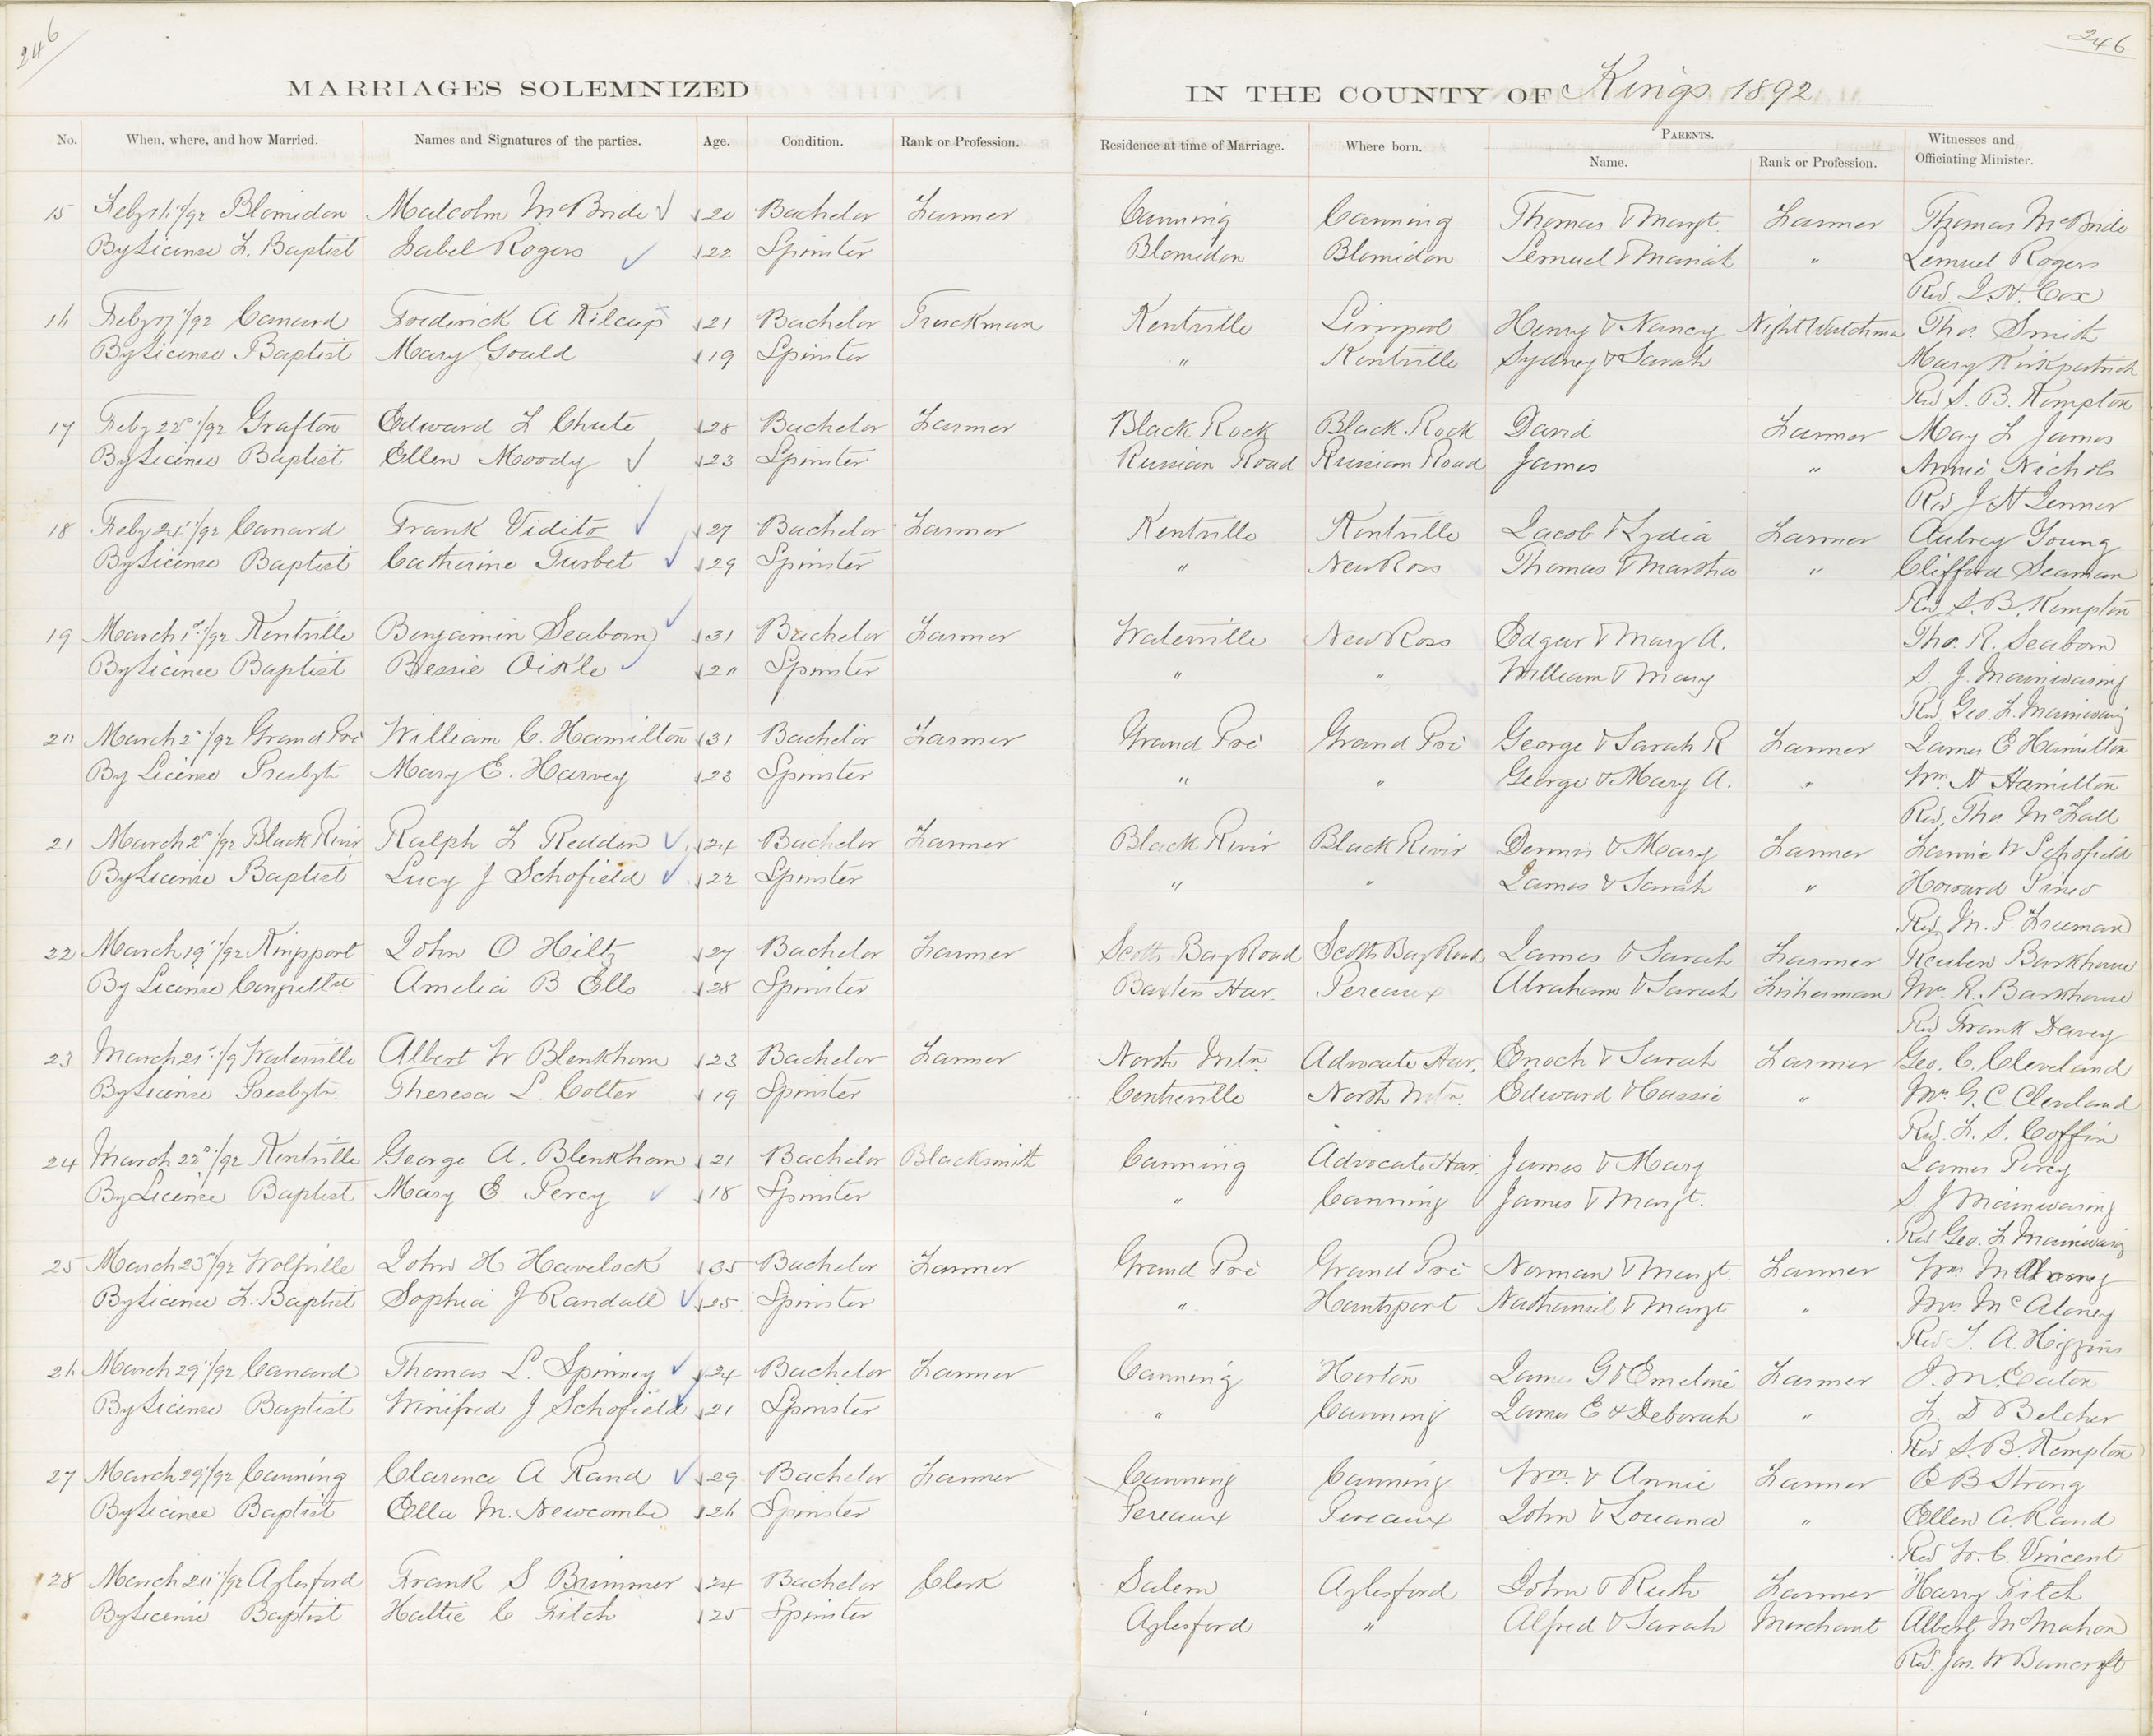 246
246
MARRIAGES SOLEMNIZED IN THE COUNTY OF Kings 1892
No. When, where, and how Married. Names and Signatures of the parties. Age. Condition. Rank or Profession. Residence at time of Marriage. Where born. PARENTS. Name. Rank or Profession. Witnesses and Officiating Minister.
15 Blomidon Malcolm McBride 20 Bachelor Farmer Canning Canning Thomas & Margt. Farmer Thomas McBride
By License F. Baptist Isabel Rogers 22 Spinster Blomidon Blomidon Lemuel & Mariah " Lemuel Rogers
Rev. J. N. Cox
16 Feby 17"/92 Canard Frederick A Kilcup 21 Bachelor Truckman Kentville Liverpool Henry & Nancy Night Watchman Tho. Smith
By License Baptist Mary Gould 19 Spinster " Kentville Sydney & Sarah Mary Kirkpatrick
Rev S. B. Kempton
17 Feby 22d/92 Grafton Edward F Chute 28 Bachelor Farmer Black Rock Black Rock David Farmer May F James
By License Baptist Ellen Moody 23 Spinster Russian Road Russian Road James " Annie Nichols
Rev J H Jenner
18 Feby 24"/92 Canard Frank Vidito 27 Bachelor Farmer Kentville Kentville Jacob & Lydia Farmer Aubrey Young
By License Baptist Catherine Turbet 29 Spinster " New Ross Thomas & Martha " Clifford Seaman
Rev S. B. Kempton
19 March 1st/92 Kentville Benjamin Seaborn 31 Bachelor Farmer Waterville New Ross Edgar & Mary A. Tho. R. Seaborn
By License Baptist Bessie Oikle 20 Spinster " " William & Mary S. J. Mainwaring
Rev. Geo. F. Mainwaring
20 March 2"/92 Grand Pré William C. Hamilton 31 Bachelor Farmer Grand Pré Grand Pré George & Sarah R Farmer James E Hamilton
By License Presbytn Mary E. Harvey 23 Spinster " " George & Mary A. " Wm. N Hamilton
Rev. Tho. McFall
21 March 2d/92 Black River Ralph F Redden 24 Bachelor Farmer Black River Black River Dennis & Mary Farmer Fannie W Schofield
By License Baptist Lucy J Schofield 22 Spinster " " James & Sarah " Howard Pineo
Rev. M. P. Freeman
22 March 19"/92 Kingsport John O Hiltz 27 Bachelor Farmer Scotts Bay Road Scotts Bay Road James & Sarah Farmer Reuben Barkhouse
By License Amelia B Ells 28 Spinster Baxters Har. Pereaux Abraham & Sarah Fisherman Mrs R. Barkhouse
Rev Frank Davey
23 March 21st/9 Waterville Albert W Blenkhorn 23 Bachelor Farmer North Mtn. Advocate Har. Enoch & Sarah Farmer Geo. C. Cleveland
By License Presbytn. Theresa L. Colter 19 Spinster Centreville North Mtn. Edward & Cassie " Mrs G. C Cleveland
Rev. F. S. Coffin
24 March 22d/92 Kentville George A. Blenkhorn 21 Bachelor Blacksmith Canning Advocate Har. James & Mary James Percy
By License Baptist Mary E Percy 18 Spinster " Canning James & Margt. S. J Mainwaring
Rev Geo. F Mainwaring
25 March 23d/92 Wolfville John H Havelock 35 Bachelor Farmer Grand Pré Grand Pré Norman & Margt. Farmer Wm
By License F. Baptist Sophia J Randall 25 Spinster " Hantsport Nathaniel & Margt. " Mrs McAloney
Rev T. A. Higgins
26 March 29"/92 Canard Thomas L. Spinney 24 Bachelor Farmer Canning Horton James G & Emeline Farmer J. M. Eaton
By License Baptist Winifred J Schofield 21 Spinster " Canning James E & Deborah " F. D Belcher
Rev S. B. Kempton
27 March 29"/92 Canning Clarence A Rand 29 Bachelor Farmer Canning Canning Wm. & Annie Farmer E B Strong
By License Baptist Ella M. Newcombe 26 Spinster Pereaux Pereaux John & Louana " Ellen A. Rand
Rev W. C. Vincent
28 March 20"/92 Aylesford Frank S Brimmer 24 Bachelor Clerk Salem Aylesford John & Ruth Farmer Harry Fitch
By License Baptist Hattie C Fitch 25 Spinster Aylesford " Alfred & Sarah Merchant Albert McMahon
Rev. Jas. W Bancroft